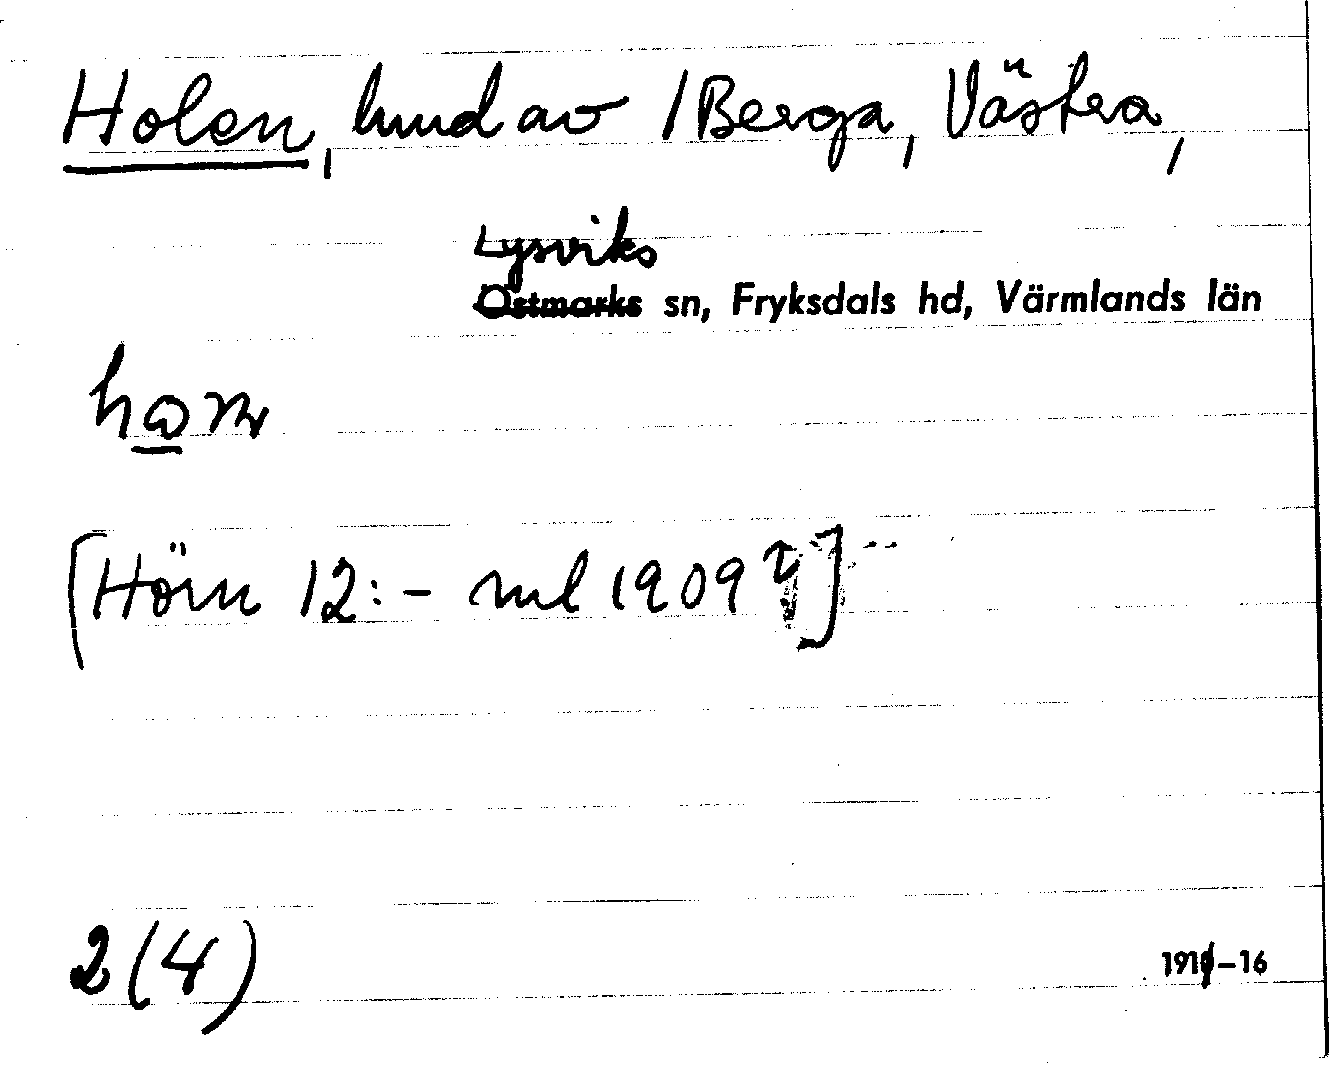 Holen, hmd av / Berga, Västra,
Lysviks
Östmarks sn, Fryksdals hd, Värmlands län
[Hörn 12:- ml 1909 ]
2 (4)
191 -16